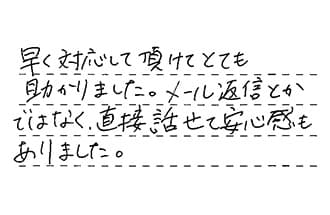 早く対応して頂けてとても
助かりました。メール返信とか
ではなく、直接話せて安心感も
ありました。